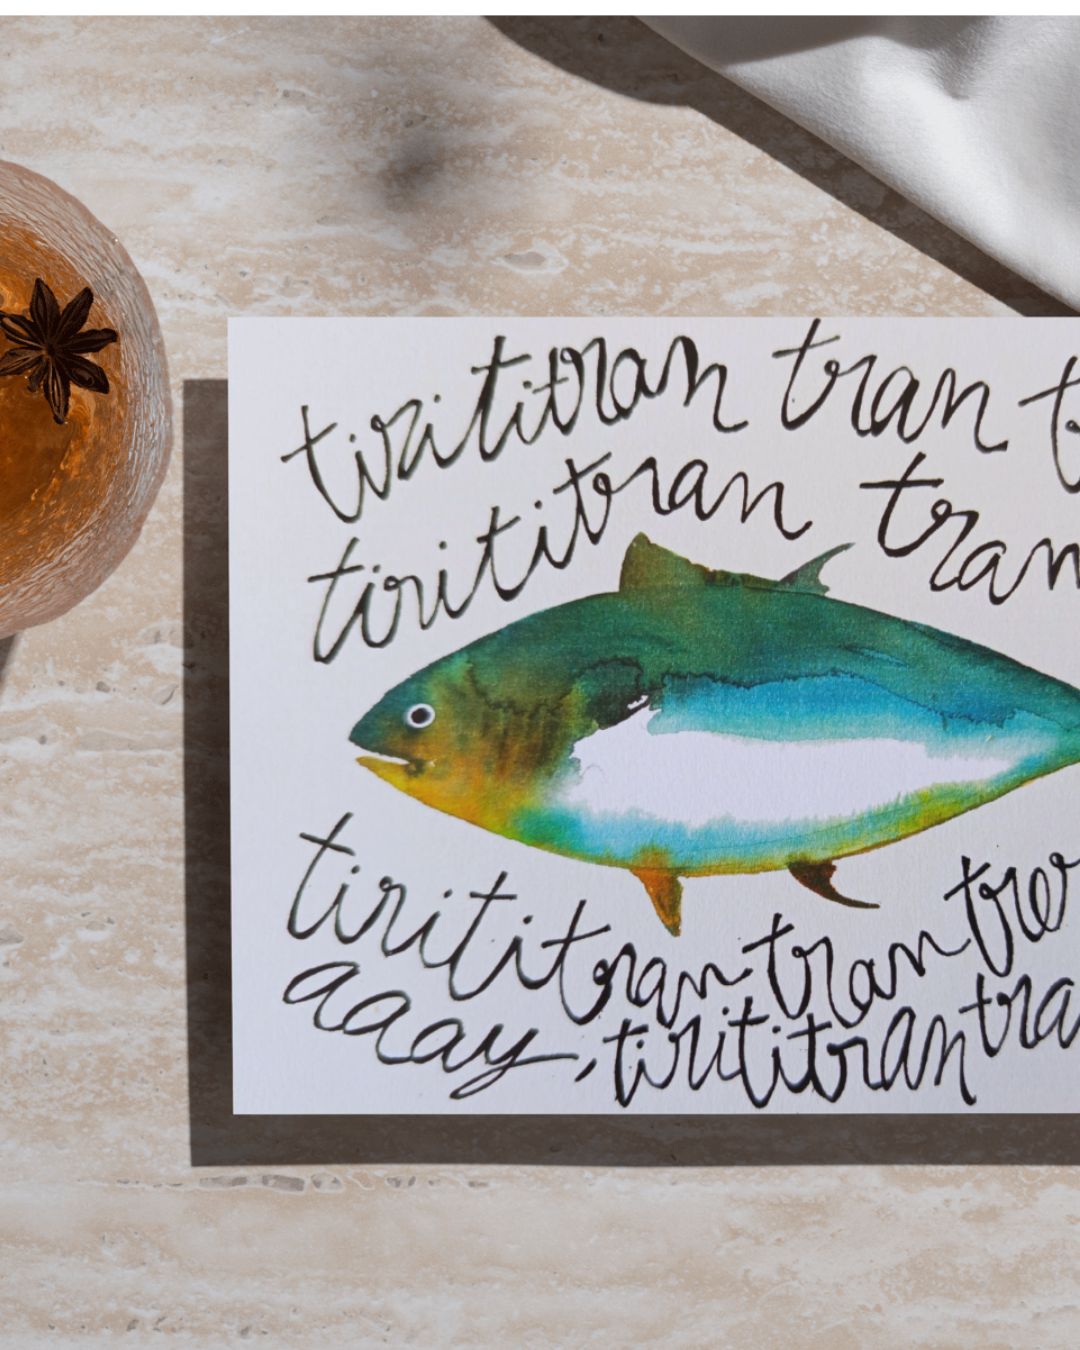 tirititran tran
tirititran tran
tirititran tran
aaay, tirititran